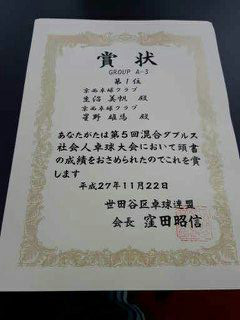 賞状
GROUP A-3
第1位
京西卓球クラブ
生沼 美帆 殿
京西卓球クラブ
星野 雄馬 殿
あなたがたは第5回混合ダブルス
社会人卓球大会において頭書
の成績をおさめられたのでこれを賞
します
平成27年11月22日
世田谷区卓球連盟
会長 窪田昭信